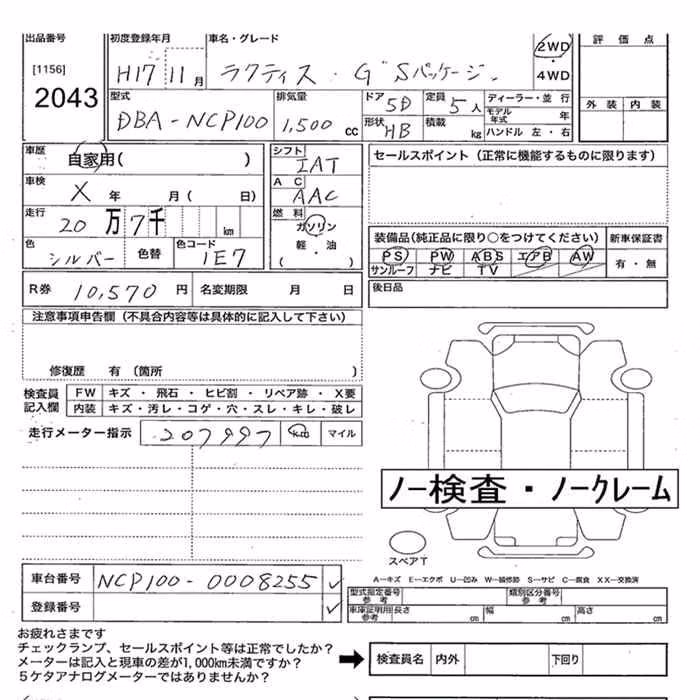 出品番号 初度登録年月 車名・グレード 2WD 評価点
[1156] H17 11月 ラクティス・G"Sパッケージ ・ 4WD
2043 型式 排気量 ドア 5D 定員 5人 ディーラー・並行 外装 内装
DBA-NCP100 1,500cc 形状 HB 積載 kg モデル年式 年
ハンドル 左・右
車歴 自家用( ) シフト IAT セールスポイント(正常に機能するものに限ります)
車検 X 年 月( 日) AC AAC
走行 20万7千 km 燃料 ガソリン 軽・油 装備品(純正品に限り○をつけてください) 新車保証書
色 シルバー 色替 色コード 1E7 PS PW ABS エアB AW 有・無
サンルーフ ナビ TV
R券 10,570円 名変期限 月 日 後日品
注意事項申告欄(不具合内容等は具体的に記入して下さい)
修復歴 有(箇所 )
検査員記入欄 FW キズ・飛石・ヒビ割・リペア跡・X要
内装 キズ・汚レ・コゲ・穴・スレ・キレ・破レ
走行メーター指示 207997 km マイル
ノー検査・ノークレーム
スペアT
A—キズ E—エクボ U—凹み W—補修跡 S—サビ C—腐食 XX—交換済
車台番号 NCP100-0008255 ✓ 型式指定番号 参考 類別区分番号 参考
登録番号 ✓ 車庫証明用 参考 長さ cm 幅 cm 高さ cm
お疲れさまです
チェックランプ、セールスポイント等は正常でしたか?
メーターは記入と現車の差が1,000km未満ですか? ➡ 検査員名 内外 下回り
5ケタアナログメーターではありませんか?